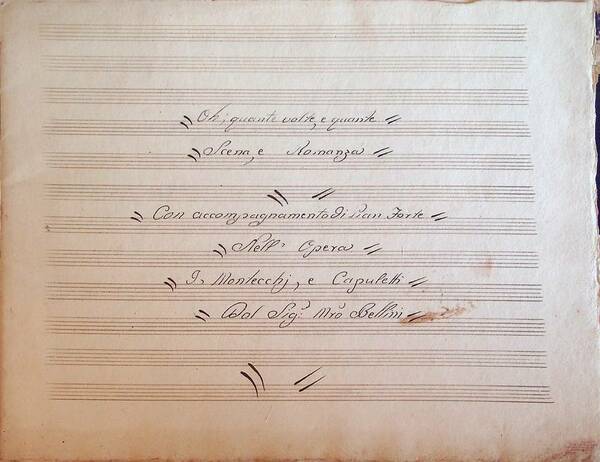 Oh; quante volte, e quante
Scena, e Romanza
Con accompagnamento di Pian Forte
Nell' Opera
I. Montecchj, e Capuletti
Del Sig.r Mro Bellini